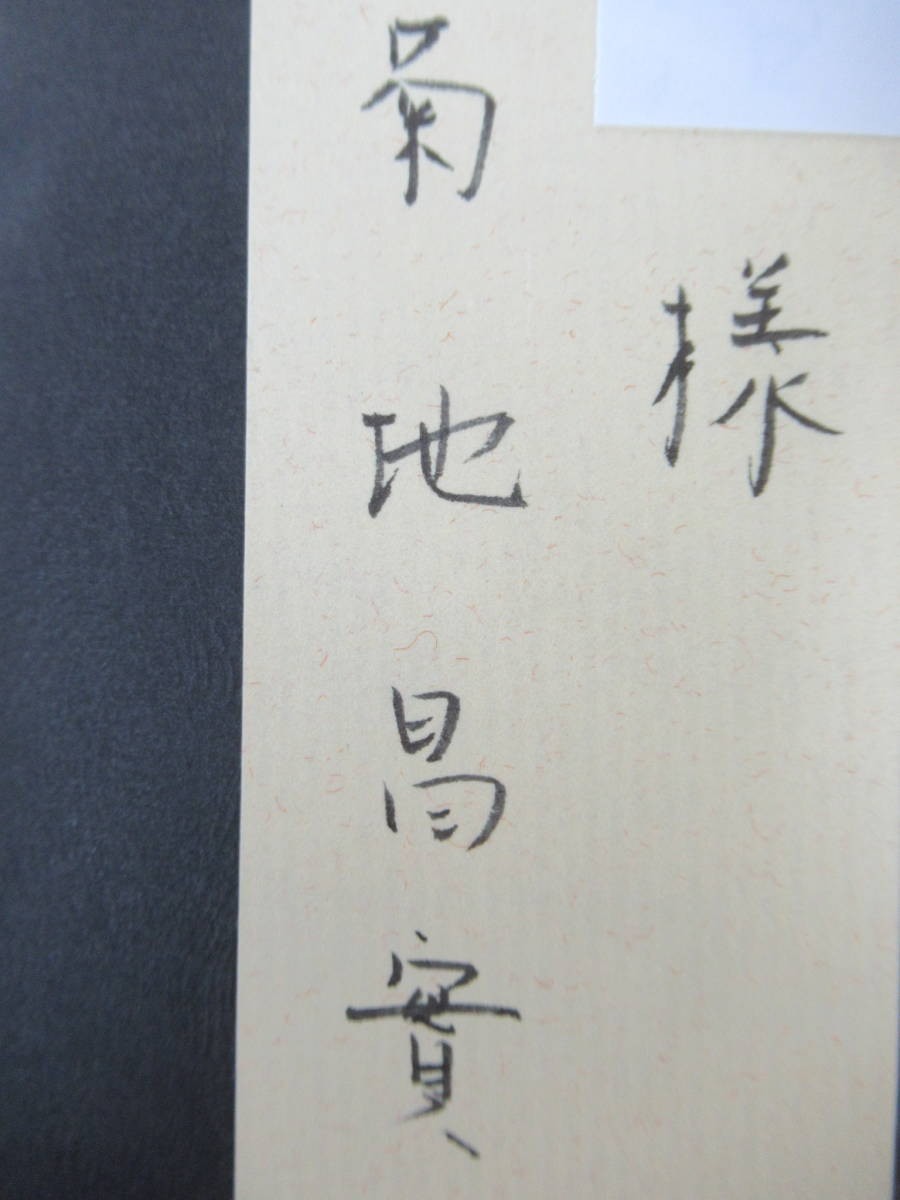 様
菊地昌實